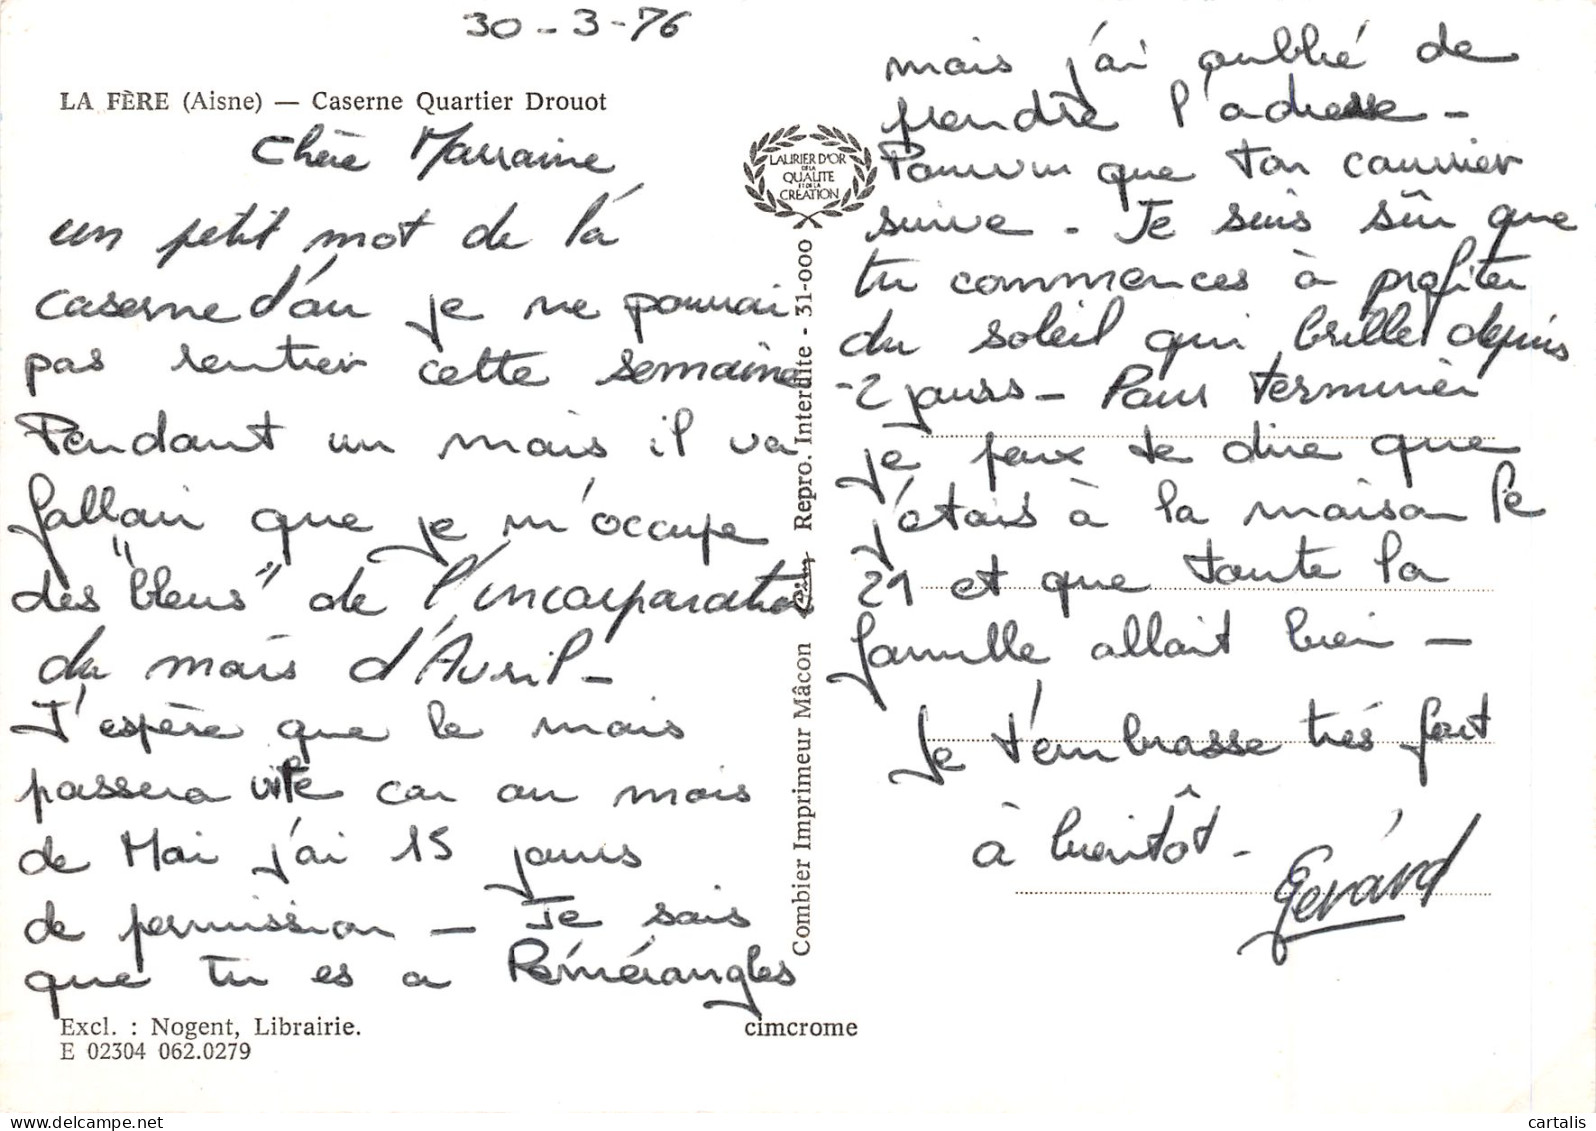 30-3-76
LA FÈRE (Aisne) — Caserne Quartier Drouot
Chère Marraine
un petit mot de la
caserne d'ou je ne pourrai
pas rentrer cette semaine
Pendant un mois il va
falloir que je m'occupe
des "bleus" de l'incorporation
du mois d'Avril -
J'espère que le mois
passera vite car au mois
de Mai j'ai 15 jours
de permission - Je sais
que tu es a Peménangles
Excl. : Nogent, Librairie.
E 02304 062.0279
LAURIER D'OR
DE LA
QUALITÉ
ET DE LA
CRÉATION
Combier Imprimeur Mâcon Repro. Interdite - 31-000
cimcrome
mais j'ai oublié de
prendre l'adresse -
Pourvu que ton courrier
suive - Je suis sûr que
tu commences à profiter
du soleil qui brille depuis
2 jours - Pour terminer
je peux te dire que
j'étais à la maison le
21 et que toute la
famille allait bien -
Je t'embrasse très fort
à bientôt -
Gérard
cartalis